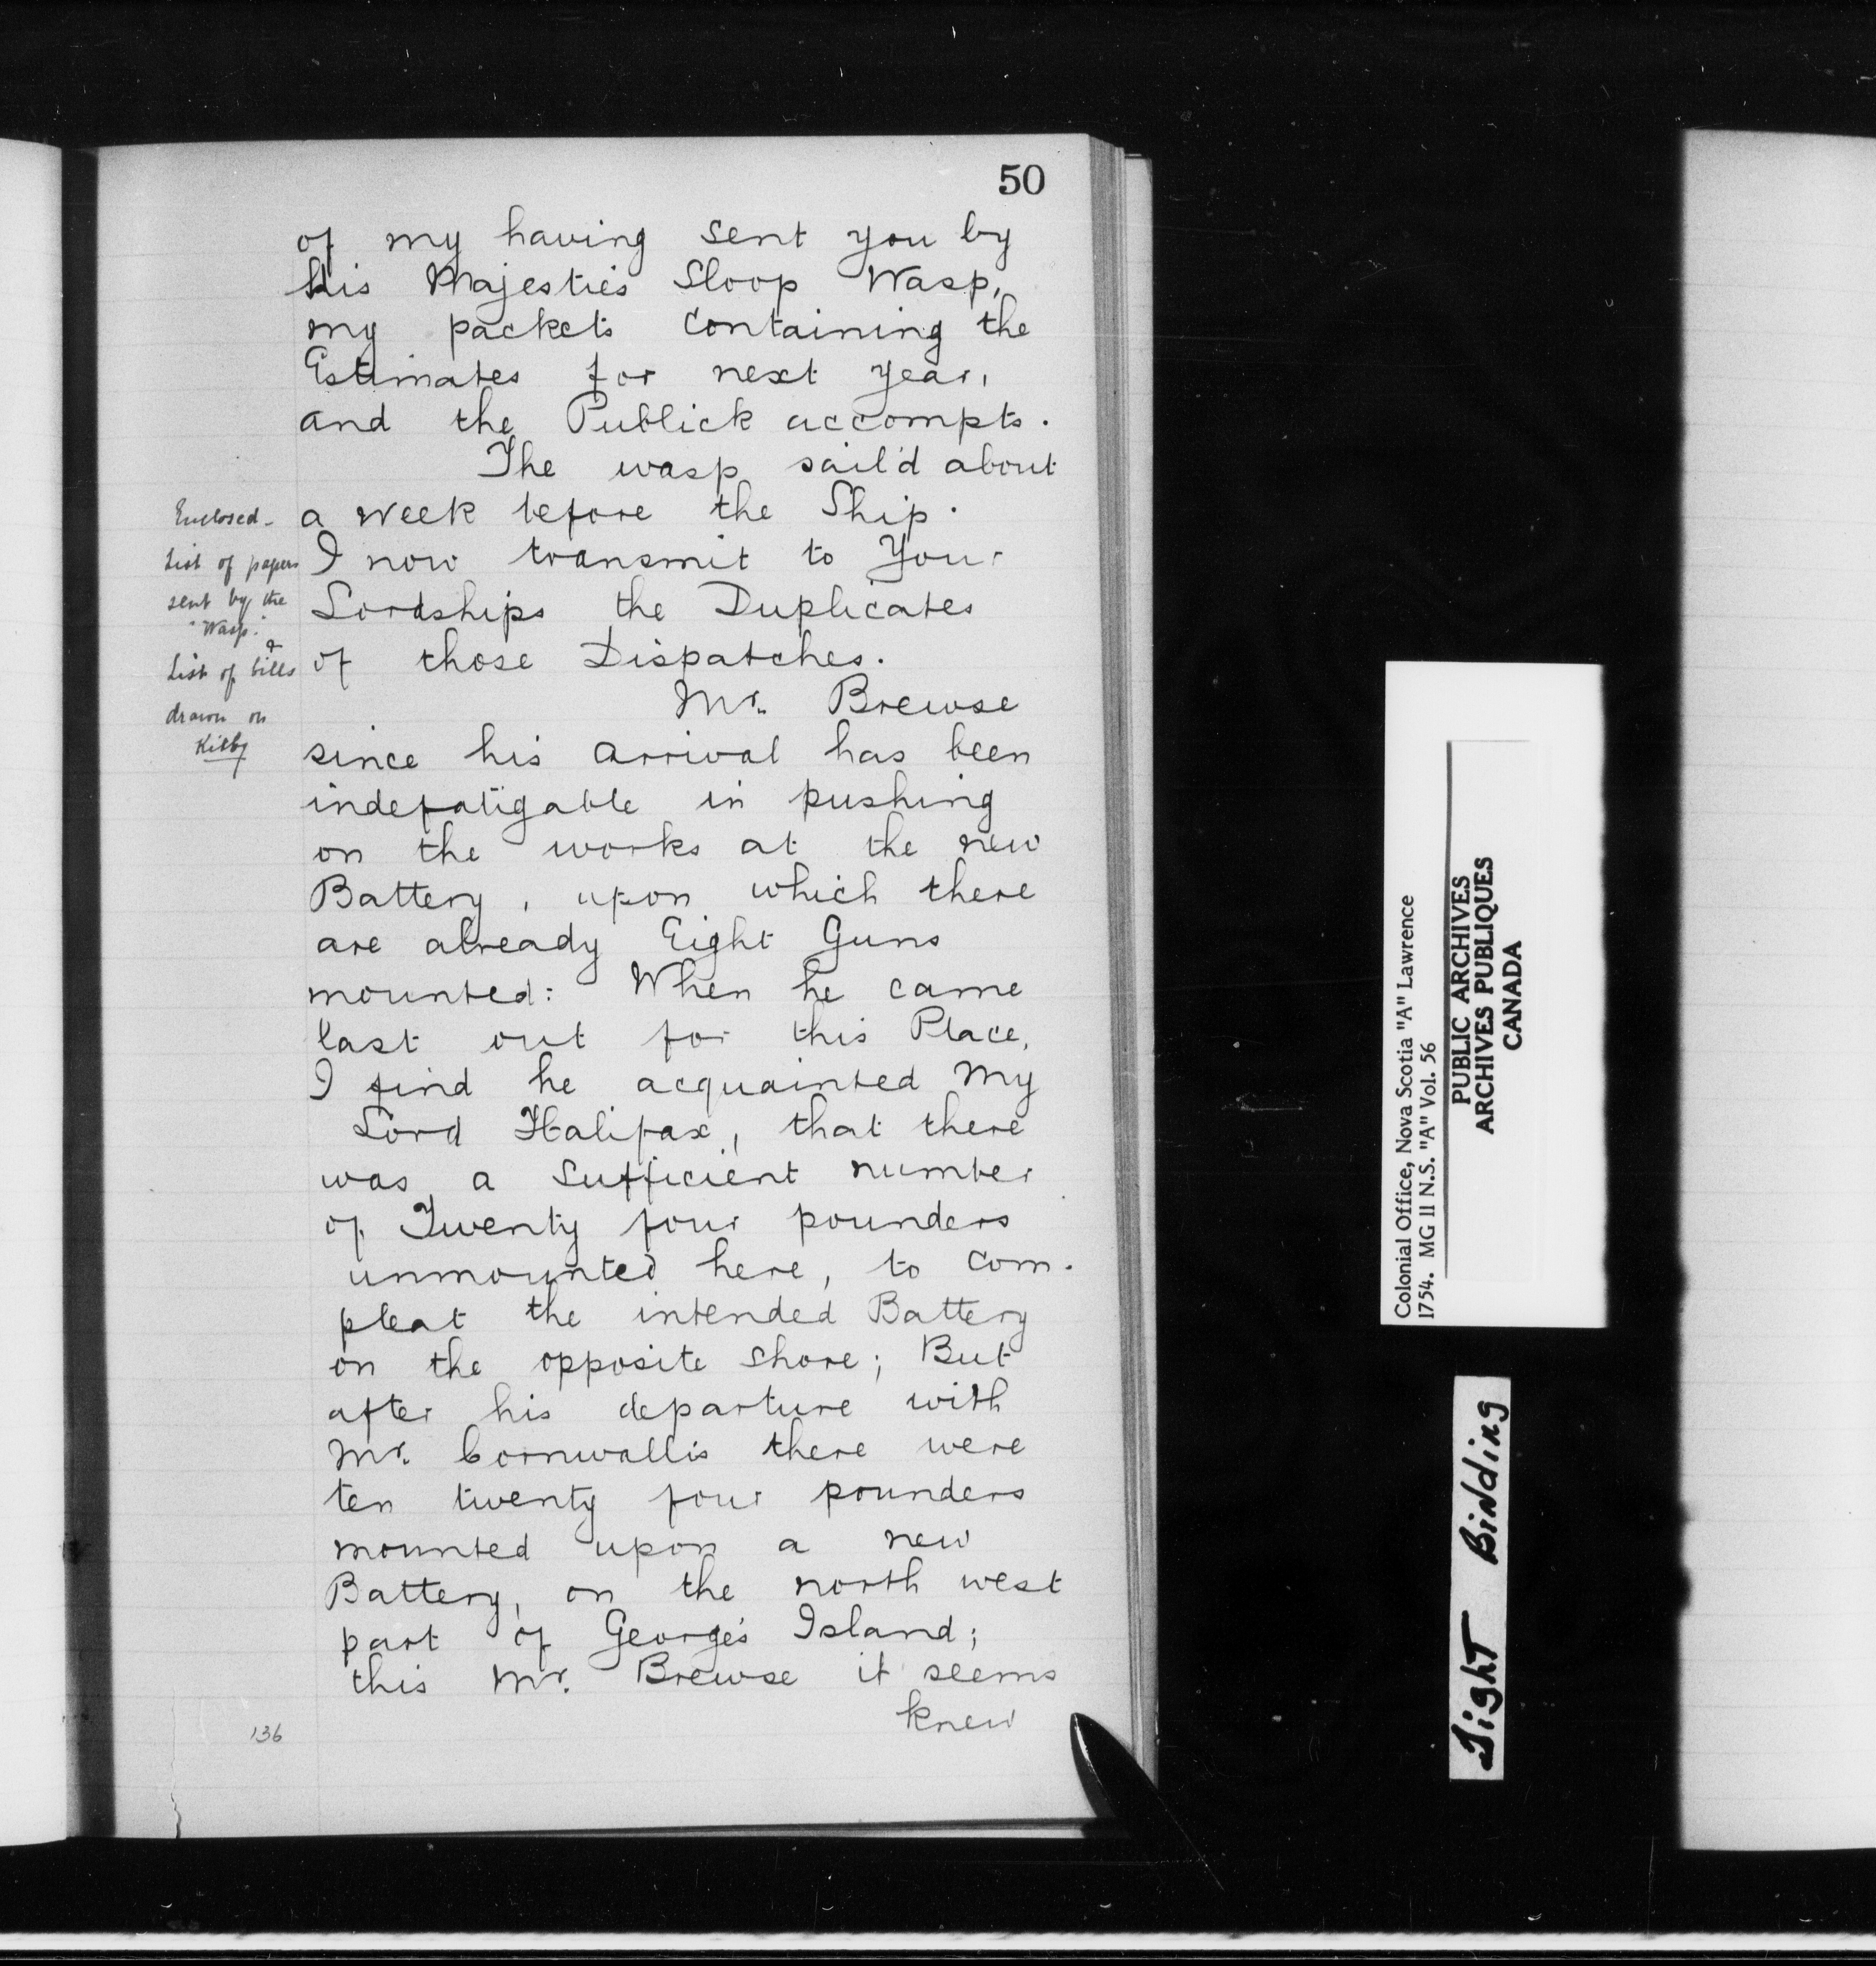 50
of my having sent you by
his Majestie's Sloop Wasp,
my packets containing the
Estimates for next year,
and the Publick accompts.
The wasp sail'd about
a week before the Ship.
I now transmit to Your
Lordships the Duplicates
of those Dispatches.
Mr. Brewse
since his arrival has been
indefatigable in pushing
on the works at the new
Battery, upon which there
are already Eight Guns
mounted: When he came
last out for this Place,
I find he acquainted My
Lord Halifax, that there
was a Sufficient number
of Twenty four pounders
unmounted here, to com-
pleat the intended Battery
on the opposite shore; But
after his departure with
Mr. Cornwallis there were
ten twenty four pounders
mounted upon a new
Battery, on the north west
part of George's Island;
this Mr. Brewse it seems
knew
Enclosed-
List of papers
sent by the
"Wasp."
&
List of bills
drawn on
Kilby
136
Colonial Office, Nova Scotia "A" Lawrence
1754. MG 11 N.S. "A" Vol. 56
PUBLIC ARCHIVES
ARCHIVES PUBLIQUES
CANADA
Tight Binding